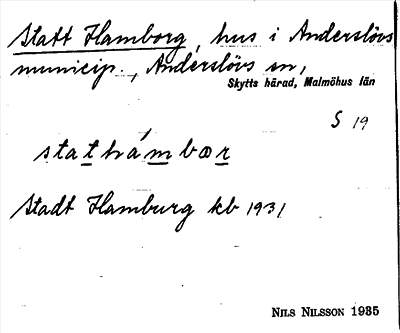 Statt Hamborg, hus i Anderslövs
municip., Anderslövs sn,
Skytts härad, Malmöhus län
S 19
stathámbœr
Stadt Hamburg kb 1931
NILS NILSSON 1935